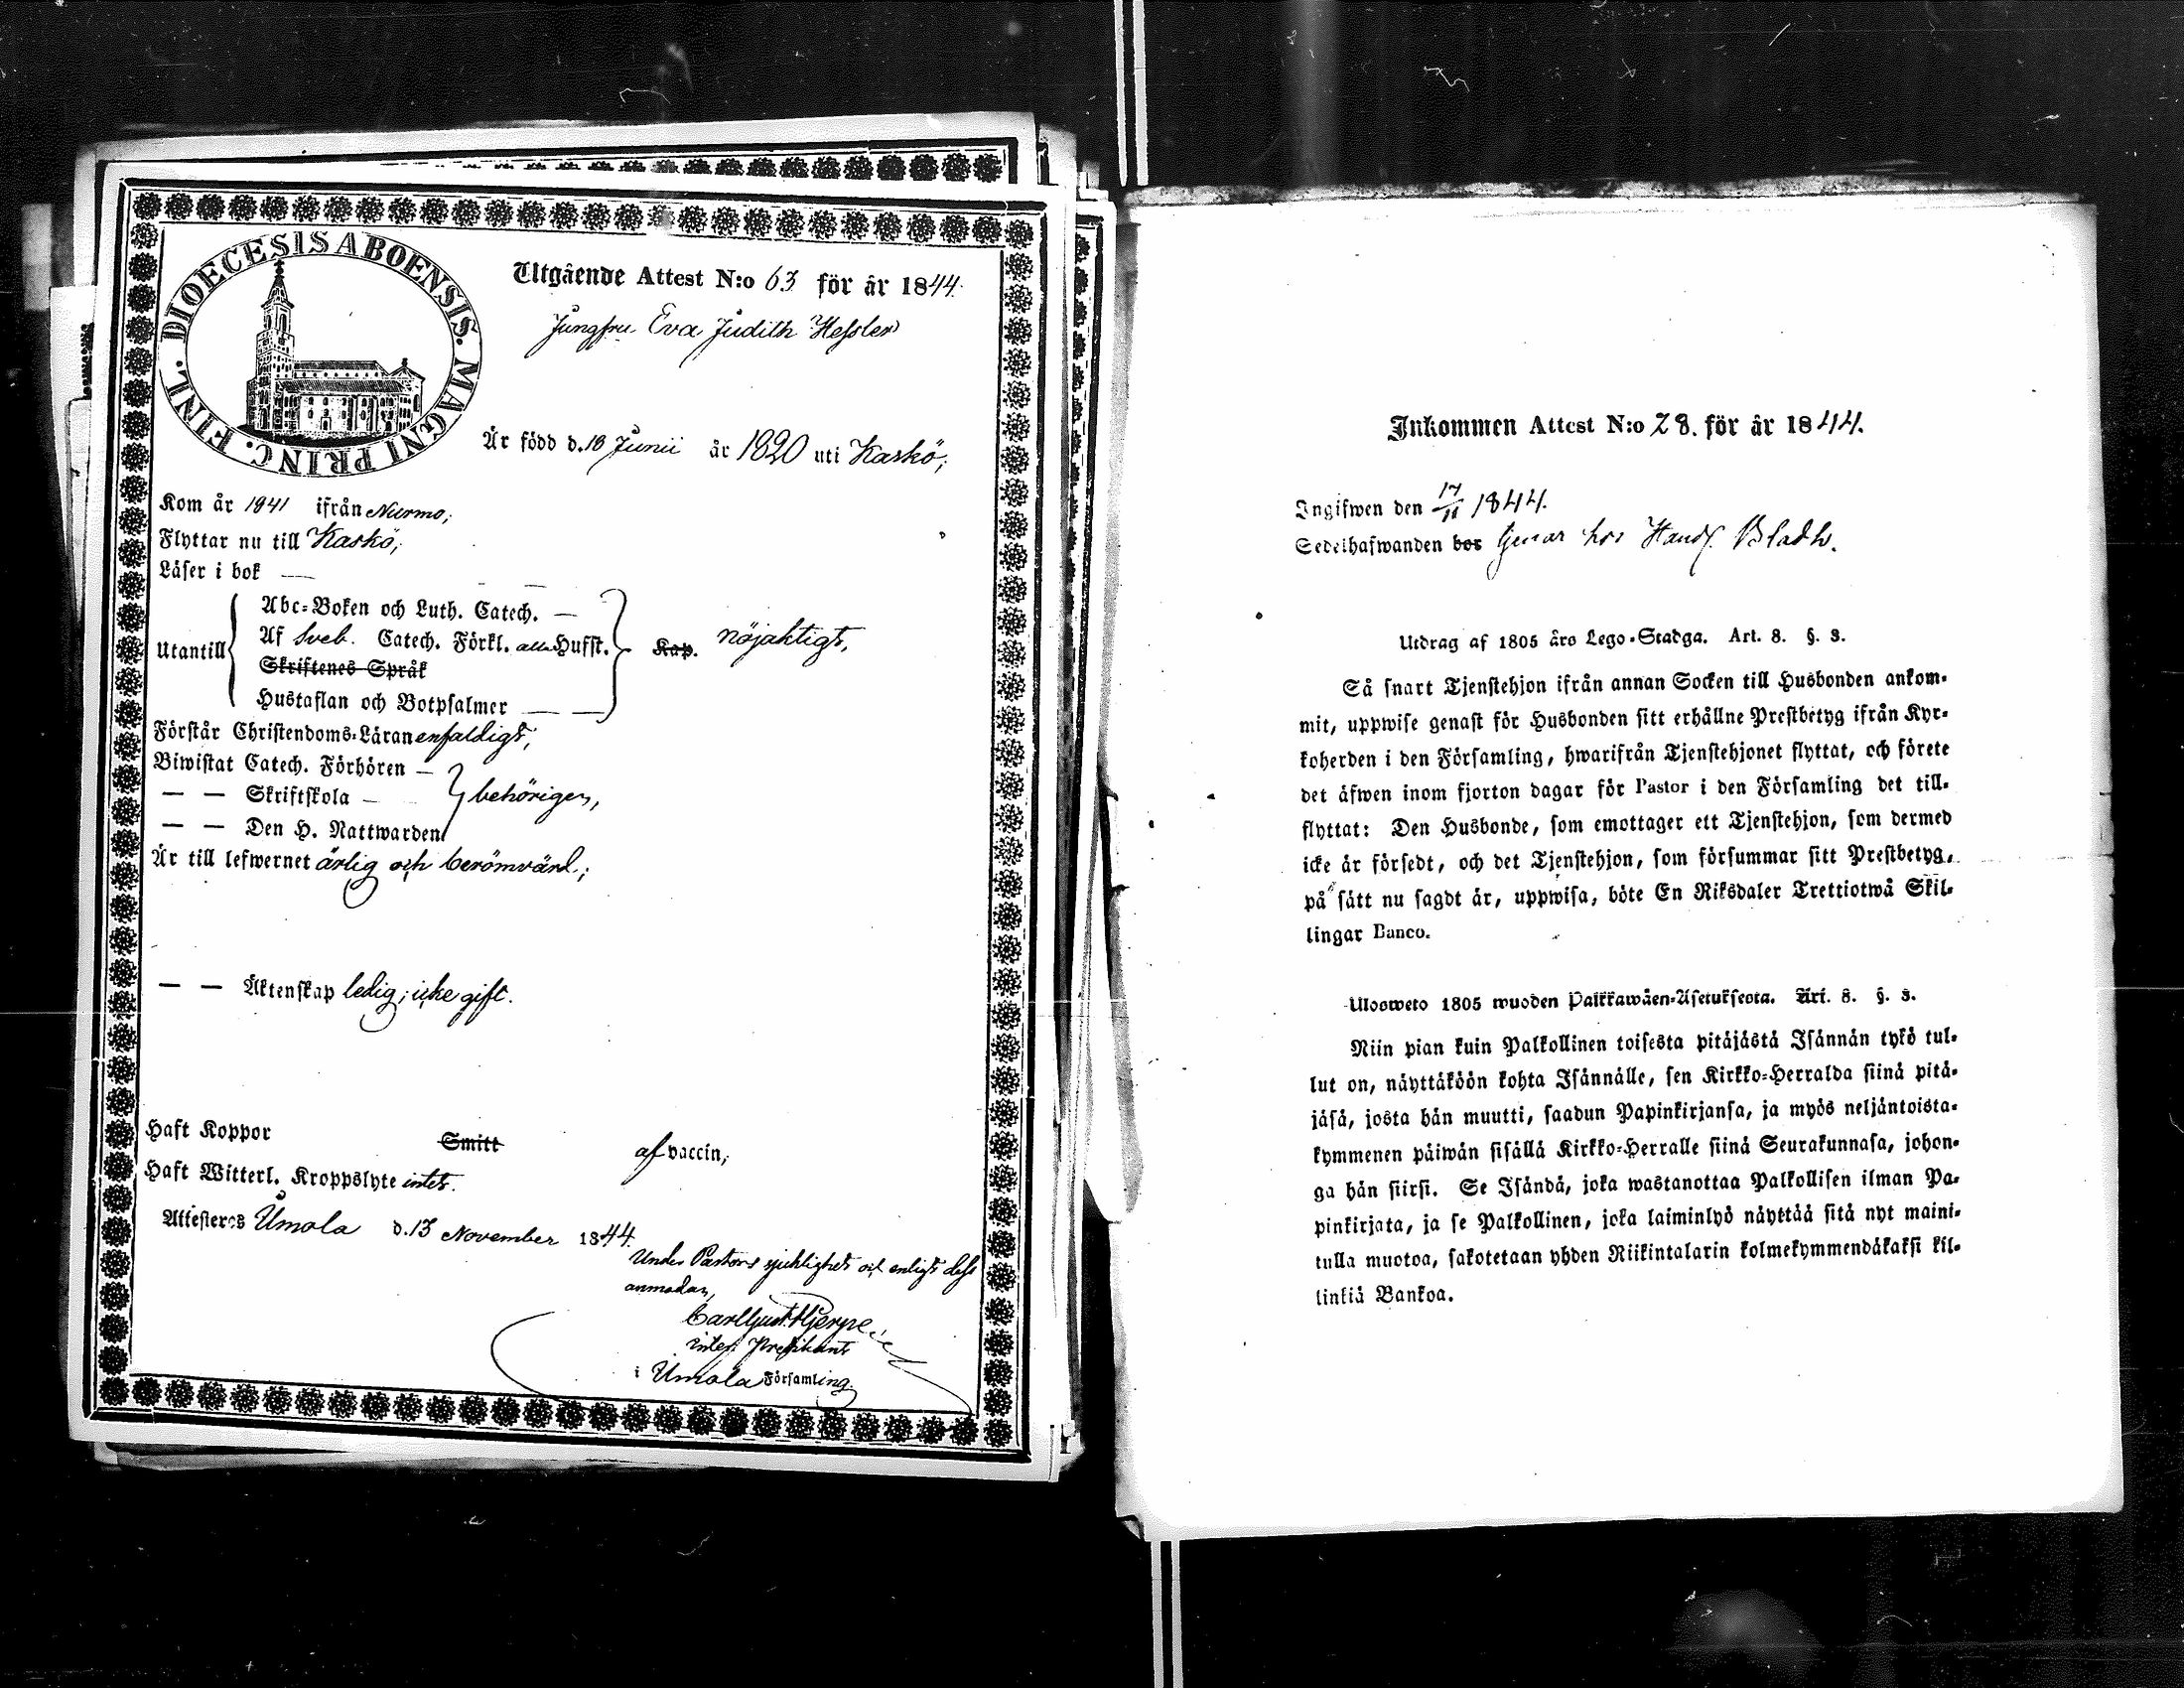 DIOECESIS ABOENSIS. MAGNI PRINC. FINL.
Utgående Attest N:o 63 för år 1844.
Jungfru Eva Judith Hessler
Är född d. 18 Junii år 1820 uti Kaskö;
Kom år 1841 ifrån Nurmo;
Flyttar nu till Kaskö;
Läser i bok —
Utantill
Abc-Boken och Luth. Catech. —
Af Sveb. Catech. Förkl. alla Hufst. Kap. nöjaktigt,
Skriftenes Språk
Hustaflan och Botpsalmer — —
Förstår Christendoms-Läran enfaldigt;
Biwistat Catech. Förhören —
— — Skriftskola — behörigen,
— — Den H. Nattwarden
Är till lefwernet ärlig och berömvärd;
— — Äktenskap ledig; icke gift.
Haft Koppor Smitt af vaccin;
Haft Witterl. Kroppslyte intet.
Attesteras Umola d. 13 November 1844.
Under Pastors sjuklighet och enligt dess
anmodan,
Carl Gust. Hjerpe
i Umola Församling.
Inkommen Attest N:o 28. för år 1844.
Ingifwen den 17/11 1844.
Sedelhafwanden bor tjenar hos Handl. Bladh.
Utdrag af 1805 års Lego-Stadga. Art. 8. §. 3.
Så snart Tjenstehjon ifrån annan Socken till Husbonden ankom-
mit, uppwise genast för Husbonden sitt erhållne Prestbetyg ifrån Kyr-
koherden i den Församling, hwarifrån Tjenstehjonet flyttat, och förete
det äfwen inom fjorton dagar för Pastor i den Församling det till-
flyttat: Den Husbonde, som emottager ett Tjenstehjon, som dermed
icke är försedt, och det Tjenstehjon, som försummar sitt Prestbetyg,
på sätt nu sagdt är, uppwisa, böte En Riksdaler Trettiotwå Skil-
lingar Banco.
Ulosweto 1805 wuoden Palkkawäen-Asetuksesta. Art. 8. §. 3.
Niin pian kuin Palkollinen toisesta pitäjästä Isännän tykö tul-
lut on, näyttäköön kohta Isännälle, sen Kirkko-Herralda siinä pitä-
jäsä, josta hän muutti, saadun Papinkirjansa, ja myös neljäntoista-
kymmenen päiwän sisällä Kirkko-Herralle siinä Seurakunnasa, johon-
ga hän siirsi. Se Isändä, joka wastanottaa Palkollisen ilman Pa-
pinkirjata, ja se Palkollinen, joka laiminlyö näyttää sitä nyt maini-
tulla muotoa, sakotetaan yhden Riikintalarin kolmekymmendäkaksi kil-
linkiä Bankoa.